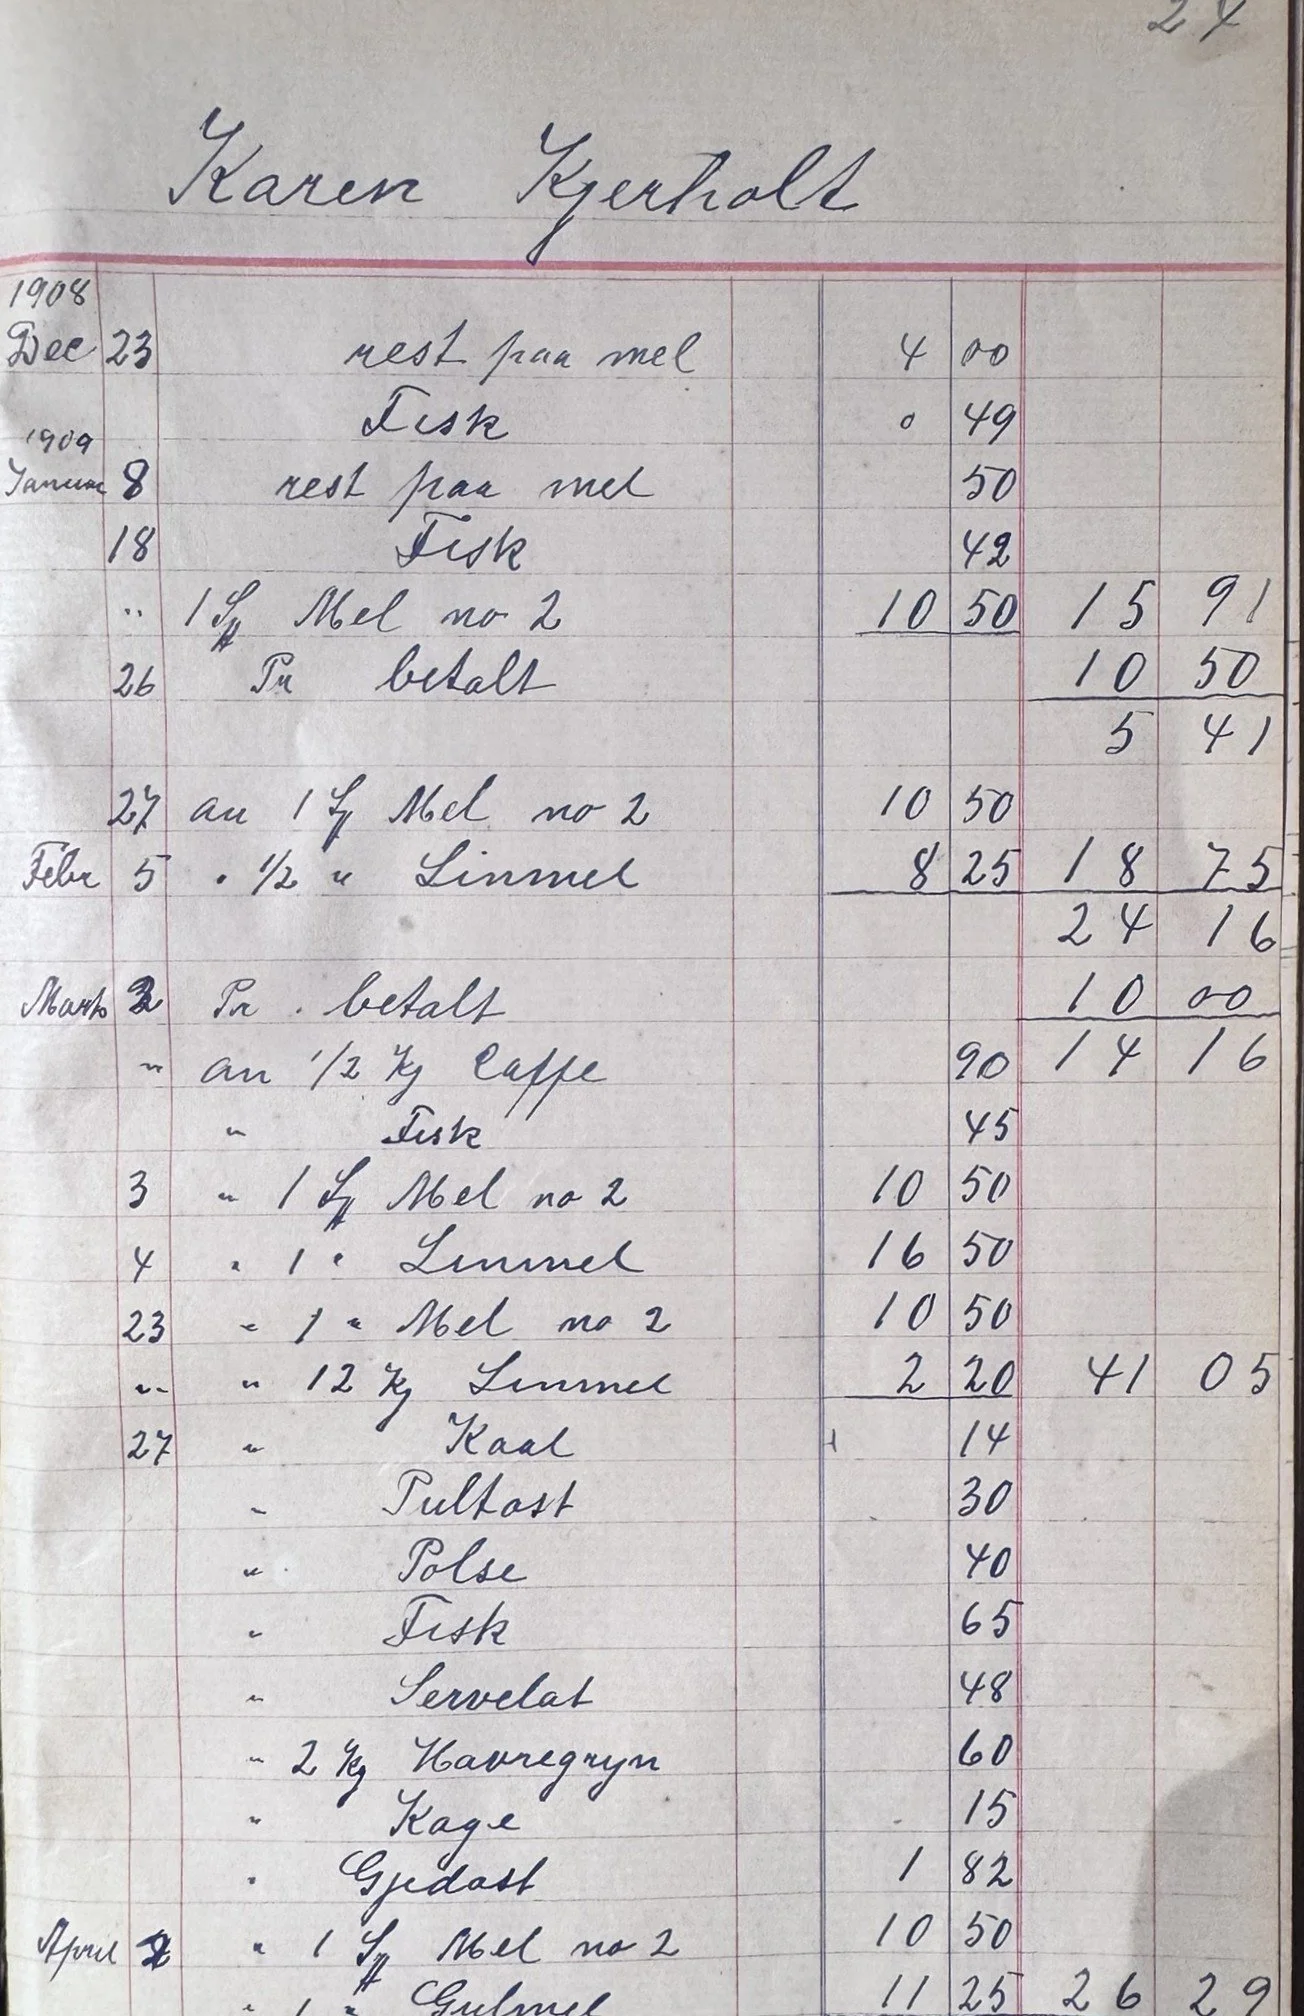 24
Karen Kjerholt
1908
Dec 23 rest paa mel 4 00
Fisk 0 49
1909
Januar 8 rest paa mel 50
18 Fisk 42
" 1 Mel no 2 10 50 15 91
26 Pr betalt 10 50
5 41
27 an 1 Mel no 2 10 50
Febr 5 " 1/2 " Linmel 8 25 18 75
24 16
Marts 2 Pr. betalt 10 00
" an 1/2 Kg Caffe 90 14 16
" Fisk 45
3 " 1 Mel no 2 10 50
4 " 1 " Linmel 16 50
23 " 1 " Mel no 2 10 50
" " 12 Kg Linmel 2 20 41 05
27 " Kaal 14
" Pultost 30
" Polse 40
" Fisk 65
" Servelat 48
" 2 Kg Havregryn 60
" Kage 15
" Gjedost 1 82
April 2 " 1 Mel no 2 10 50
" 1 " Gulmel 11 25 26 29